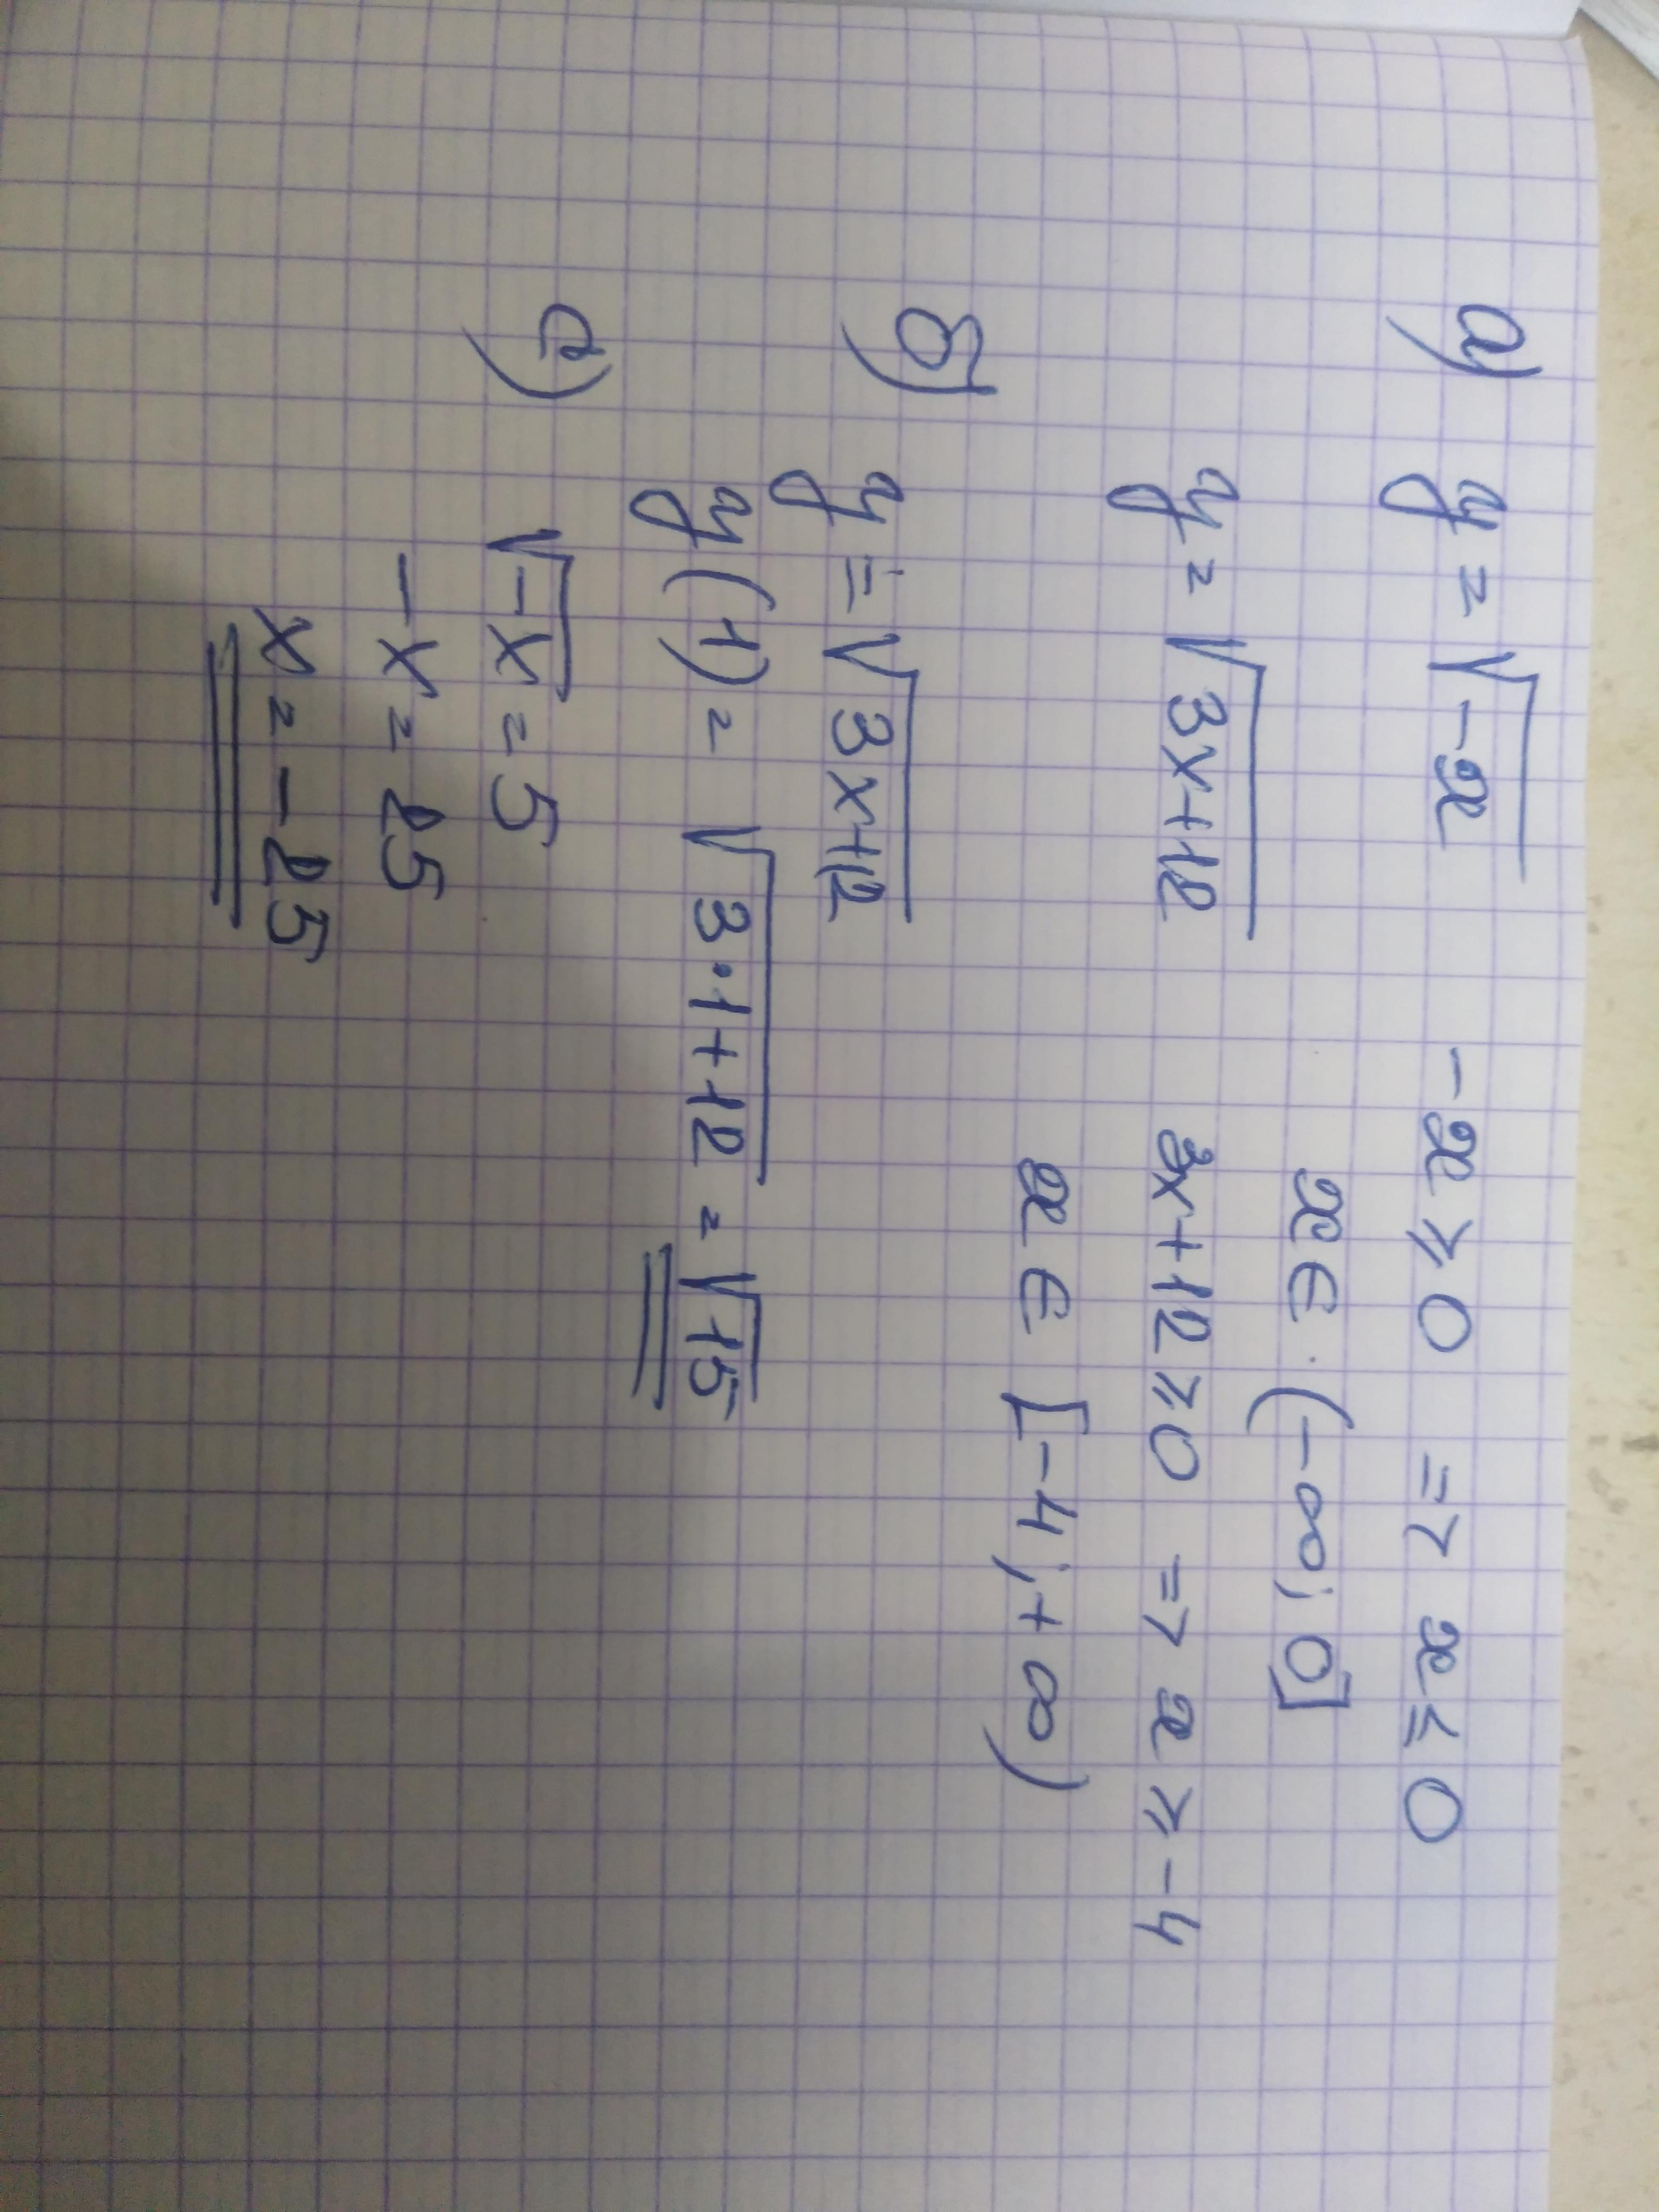 а) y = √-x   -x ≥ 0 => x ≤ 0
x ∈ (-∞; 0]
y = √3x+12   3x+12 ≥ 0 => x ≥ -4
x ∈ [-4; +∞)
б) y = √3x+12
y(1) = √3·1+12 = √15
c) √-x = 5
-x = 25
x = -25